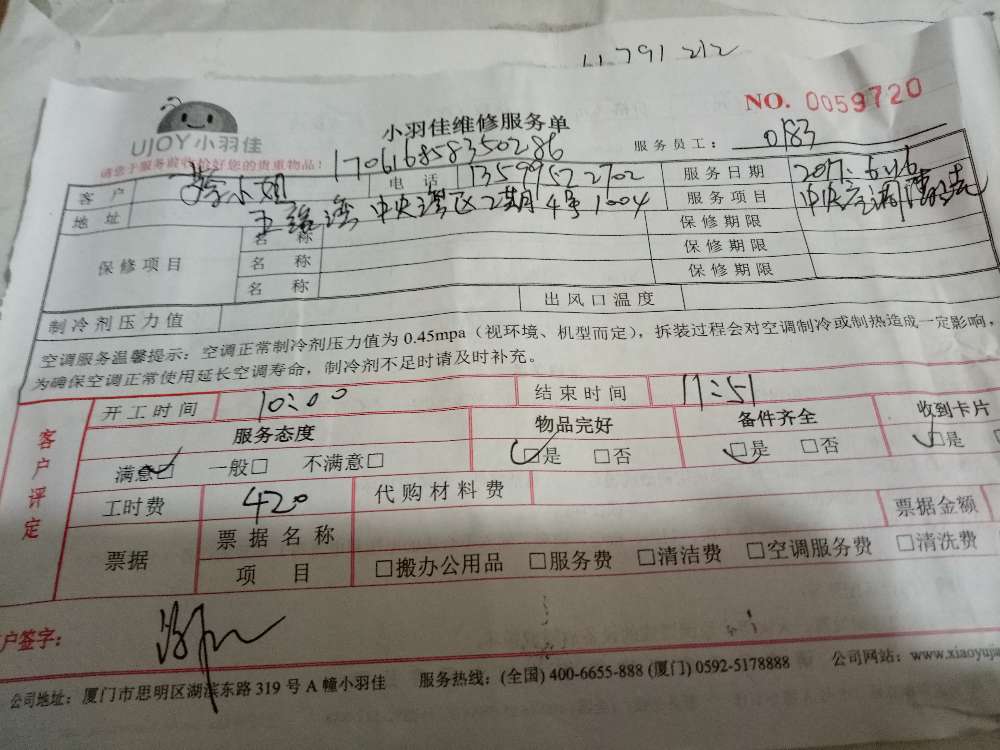 11 791 212
NO. 0059720
UJOY小羽佳
小羽佳维修服务单
服务员工: 0183
请您于服务前收拾好您的贵重物品!
170616858350286
客户 李小姐 电话 13599522702 服务日期 2017.6.16
地址 五缘湾中央湾区2期4号1004 服务项目 中央空调清洗
保修项目 名称 保修期限
名称 保修期限
名称 保修期限
制冷剂压力值 出风口温度
空调服务温馨提示: 空调正常制冷剂压力值为0.45mpa(视环境、机型而定),拆装过程会对空调制冷或制热造成一定影响,
为确保空调正常使用延长空调寿命,制冷剂不足时请及时补充。
客户评定
开工时间 10:00 结束时间 11:51
服务态度 物品完好 备件齐全 收到卡片
满意□ 一般□ 不满意□ □是 □否 □是 □否 □是
工时费 420 代购材料费
票据 票据名称 票据金额
项目 □搬办公用品 □服务费 □清洁费 □空调服务费 □清洗费
户签字:
公司地址: 厦门市思明区湖滨东路319号A幢小羽佳 服务热线: (全国) 400-6655-888 (厦门) 0592-5178888 公司网站: www.xiaoyuja